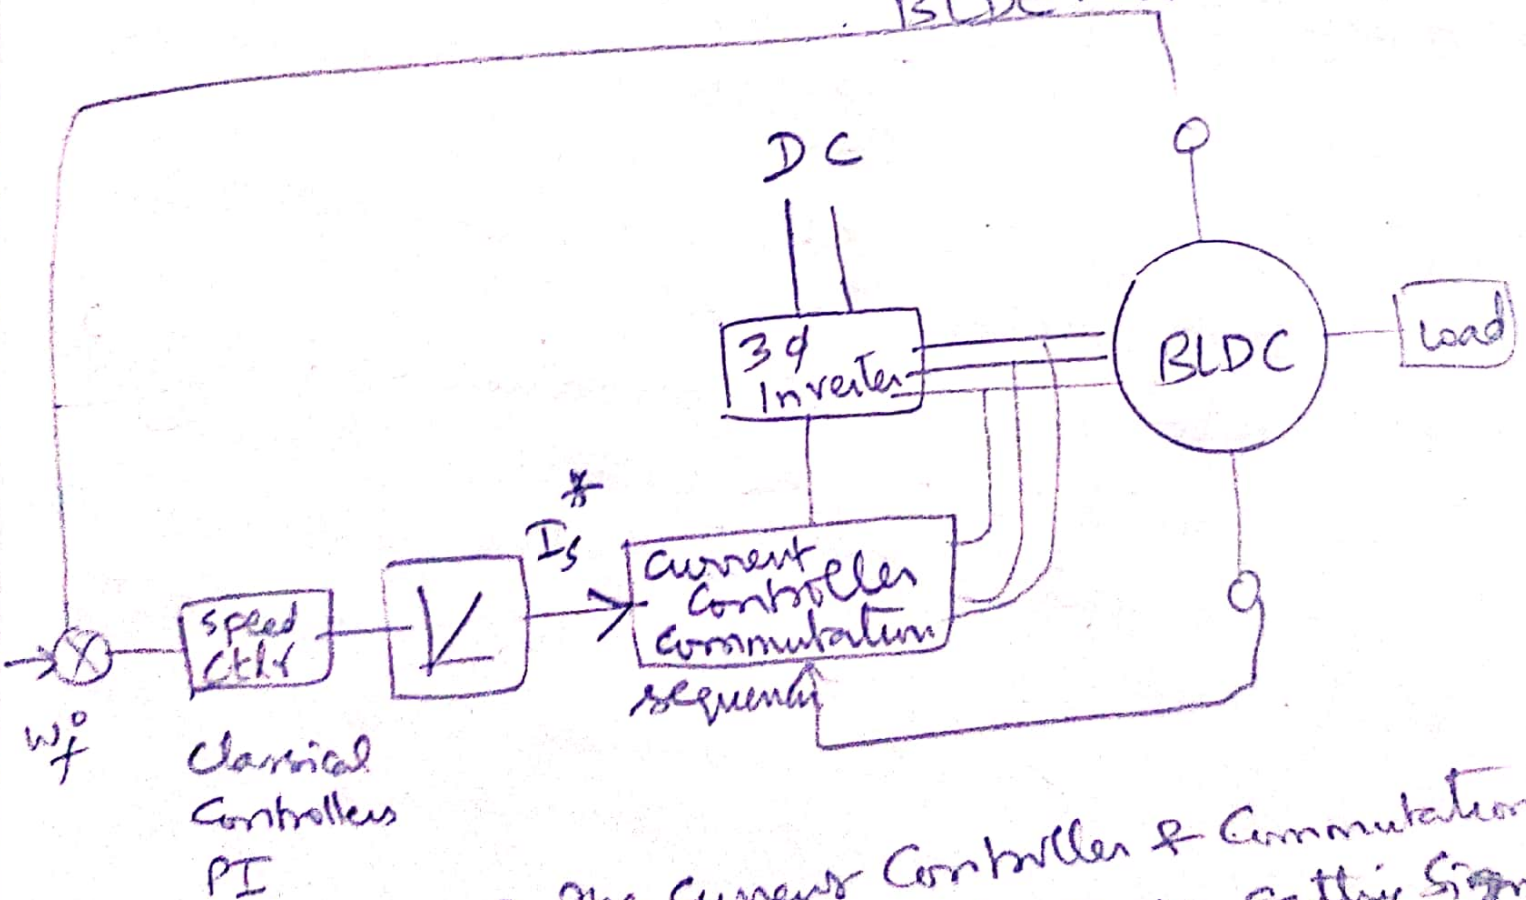 BLDC
DC
3φ
Inverter
BLDC
Load
*
Is
Current
Controller
Commutation
sequence
Speed
Ctlr
Classical
Controllers
PI
The Current Controller & Commutation